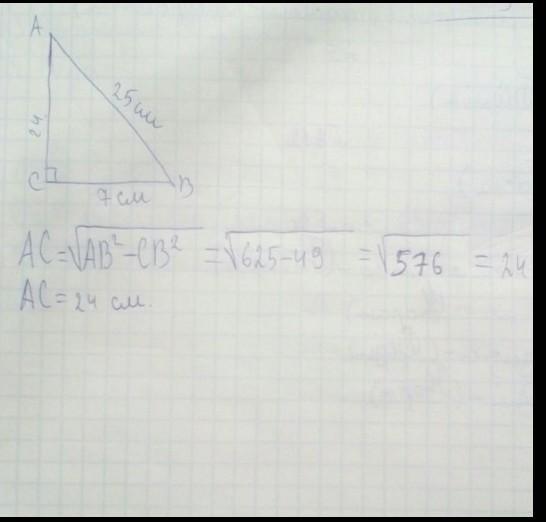 A
25 см
24
C
B
7 см
AC=√AB²-CB² =√625-49 =√576 = 24
AC= 24 см.